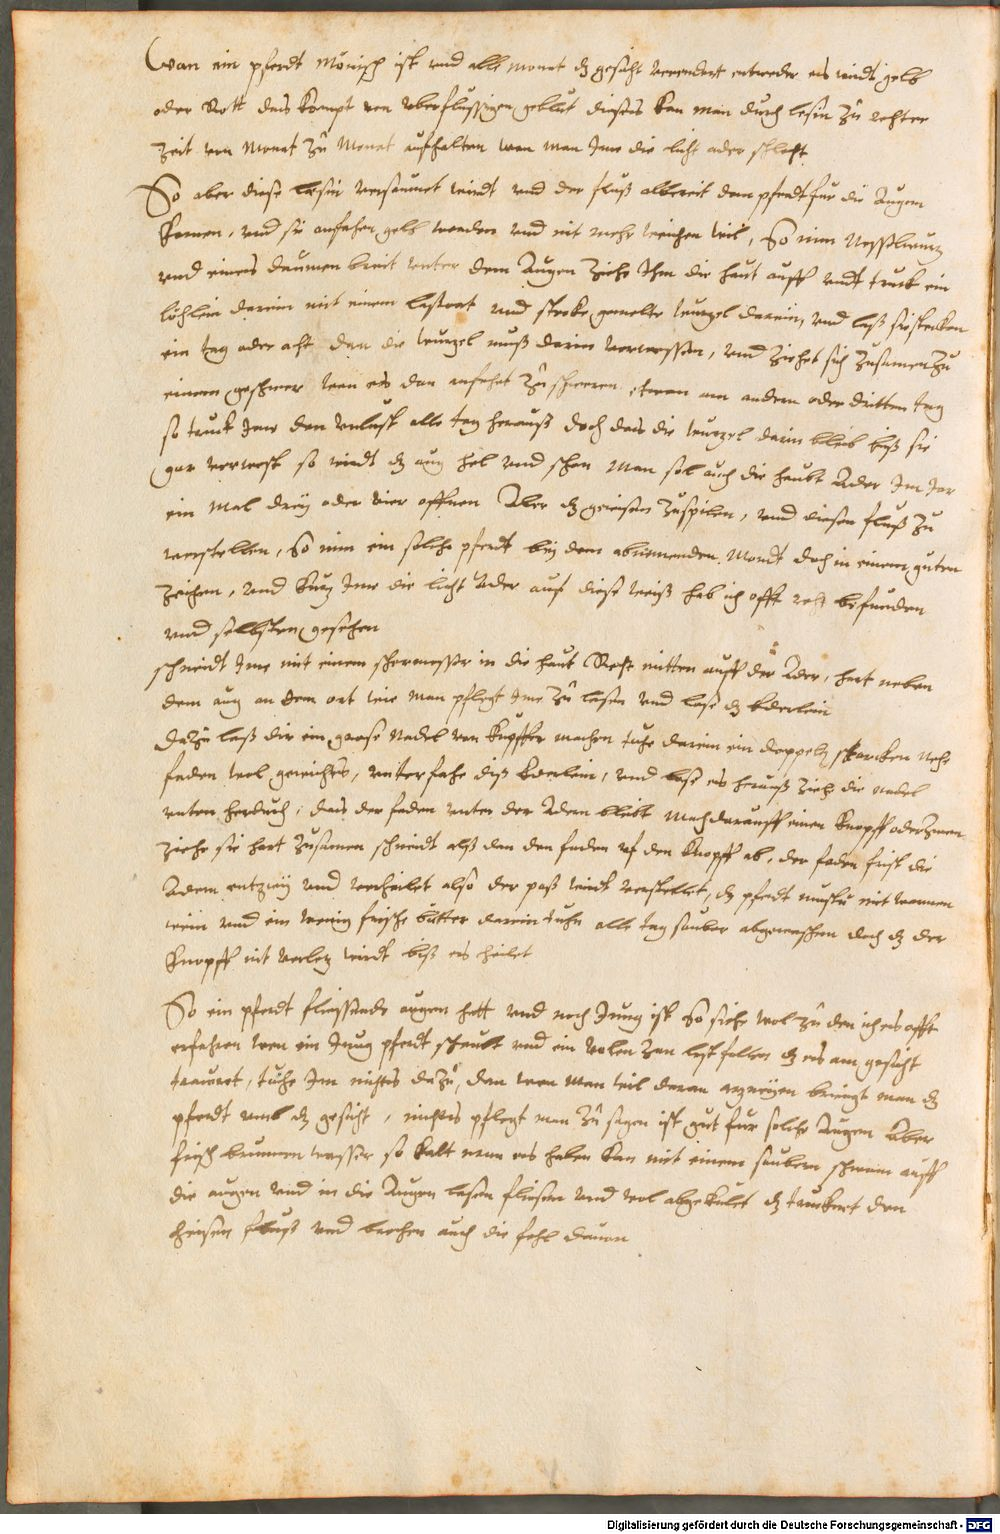 Wan ein pferdt Mönisch ist und alle monat dz gesicht verendert entweder es wirdt gelb
oder Rott das kompt von uberflussigen geblut dieses kan man durch lasen zu rechter
Zeit von Monat zu Monat auffhalten wen man Ime die licht oder schlecht
So aber diese lasin versaumet wirdt und der fluß allbereit dem pferdt fur die Augen
komen, und sie anfahen gelb werden und nit mehr weichen wil, So nim Nesslwurtz
und eines daumen breit unter dem Augen ziehe Ihm die haut auff undt truck ein
löchlein darein mit einem und stecke gemelte wurzel darein, und laß sie stecken
ein tag oder aht dan die wurzel muß darin verwessen, und Ziehet sich zusamen zu
einem geschwer wen es dan anfahet zu schweren etwan am andern oder dritten tag
so truck Ime den unlust alle tag herauß doch das die wurzel darin bleib biß sie
gar verwest so wirdt dz aug hel und schen Man sol auch die haubt Ader Im Jar
ein mal drey oder vier offnen Aber dz gewisen zuspilen, und diesen fluß zu
verstellen, So nim ein solche pferdt bey dem abnemenden Mondt doch in einem guten
Zeichen, und Ime die licht Ader auf diese weiß hab ich offt reht befunden
und selbsten gesehen
schneidt Ime mit einem schermesser in die haut Reht mitten auff der Ader, hart neben
dem aug an dem ort wie man pflegt Ime zu lasen und lase dz Ederlein
Dazu laß dir ein grose Nadel von Kupffer machen tuhe darein ein doppelt starcken Nehe
faden wol gewichts, unterfahe diß Ederlein, und lose es herauß zieh die nadel
unten herduch, das der faden unter der Adern bleibt Mach darauff einen Knopff oder zwen
Ziehe sie hart zusamen schneidt alß dan den faden uf den Knopff ab, der faden frist die
Adern entzwey und verheilet also der paß wirdt verstellet, dz pferdt mustu mit warmen
wein und ein wenig frische butter darein tuhn alle tag sauber abgewaschen doch dz der
Knopff nit verletz wirdt biß es heilet
So ein pferdt fliessende augen hatt und noch Jung ist So siehe wol zu den ich es offt
erfahren wen ein Jung pferdt schaubt und ein volen zan lest fallen dz es am gesicht
trauret, tuhe Im nichts dazu, dan wen man wil daran artzneyen bringt man dz
pferdt umb dz gesicht, nichts pflegt man zu sagen ist gut fur solche Augen Aber
frisch brunnen wasser so kalt man es haben kan mit einem saubern schwam auff
die augen und in die Augen lasen fliesen und wol abgekult dz truckert den
heisen fluß und brechen auch die fehl davon
Digitalisierung gefördert durch die Deutsche Forschungsgemeinschaft - DFG